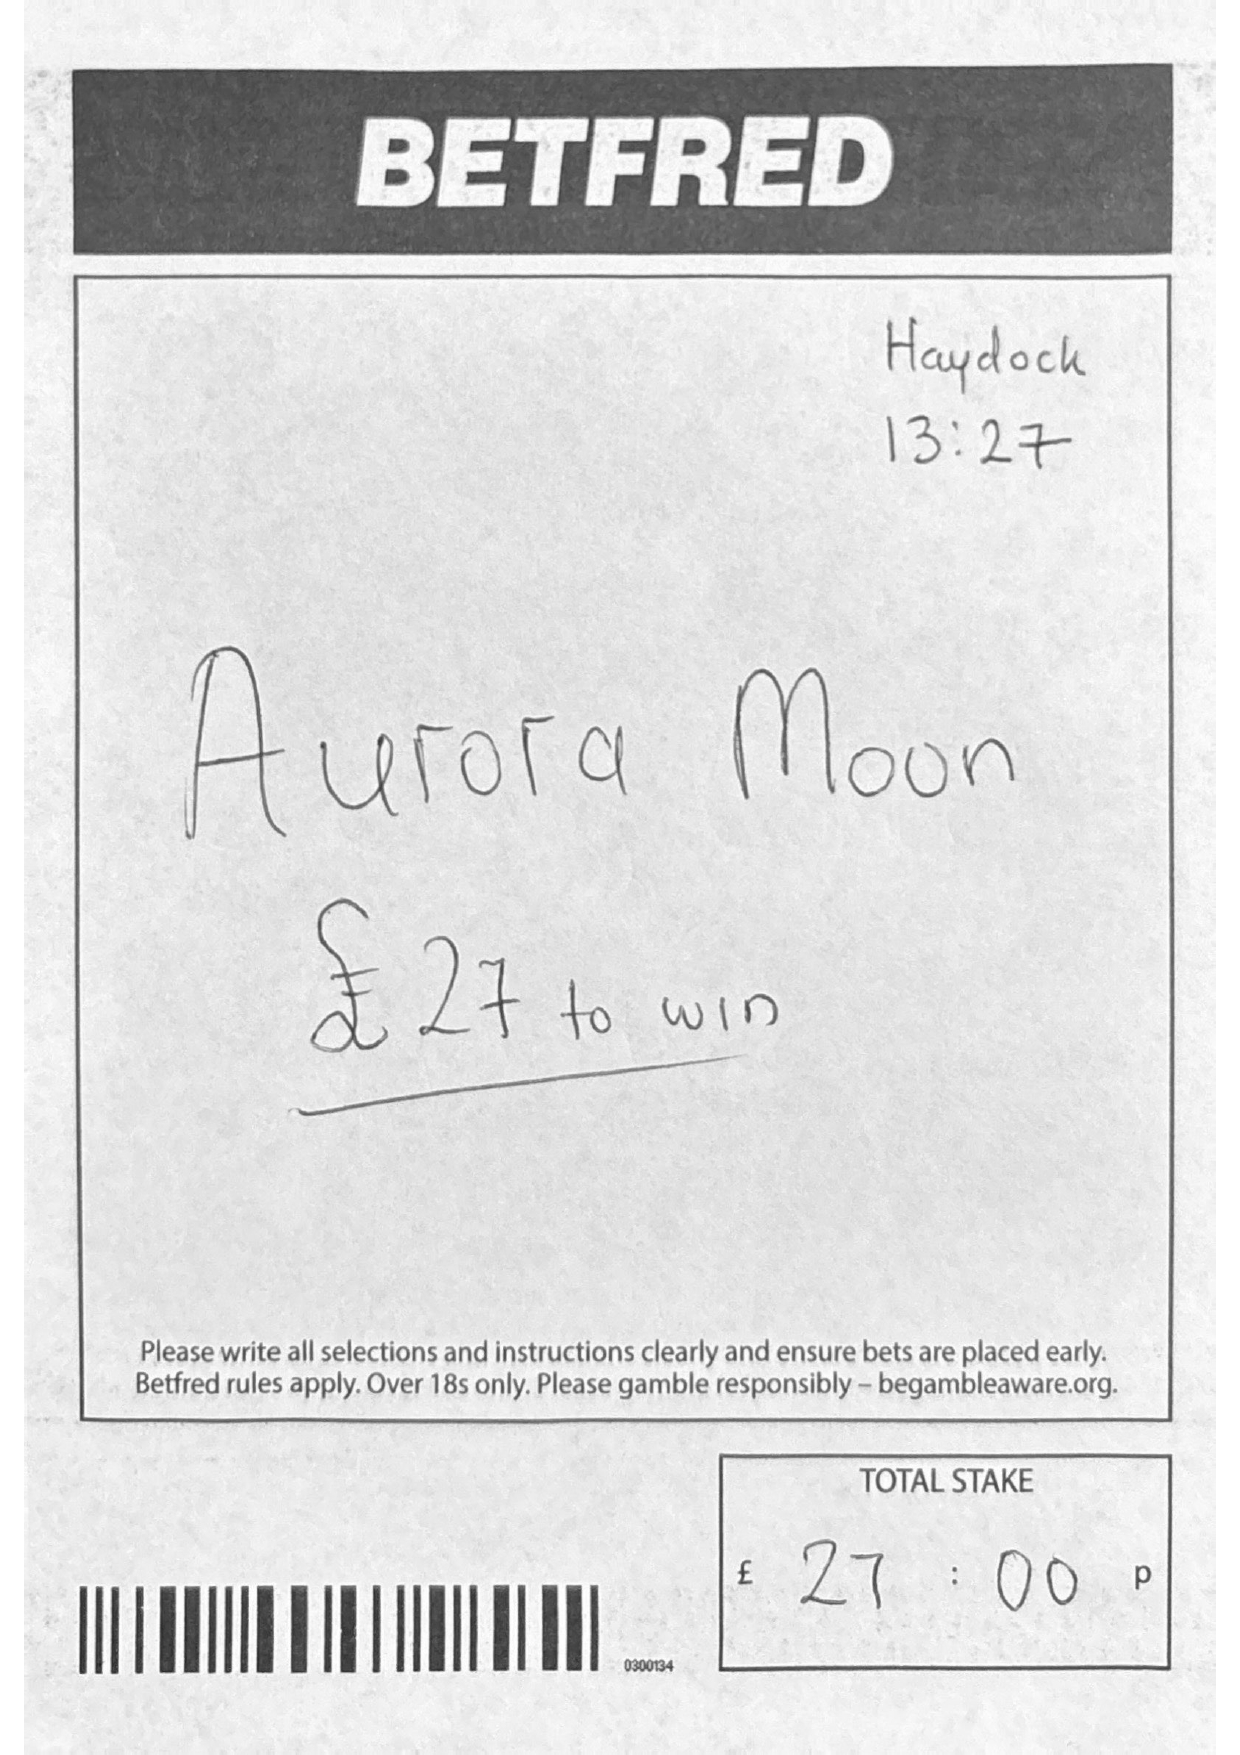 BETFRED
Haydock
13:27
Aurora Moon
£27 to win
Please write all selections and instructions clearly and ensure bets are placed early.
Betfred rules apply. Over 18s only. Please gamble responsibly – begambleaware.org.
TOTAL STAKE
£ 27 : 00 p
0300134